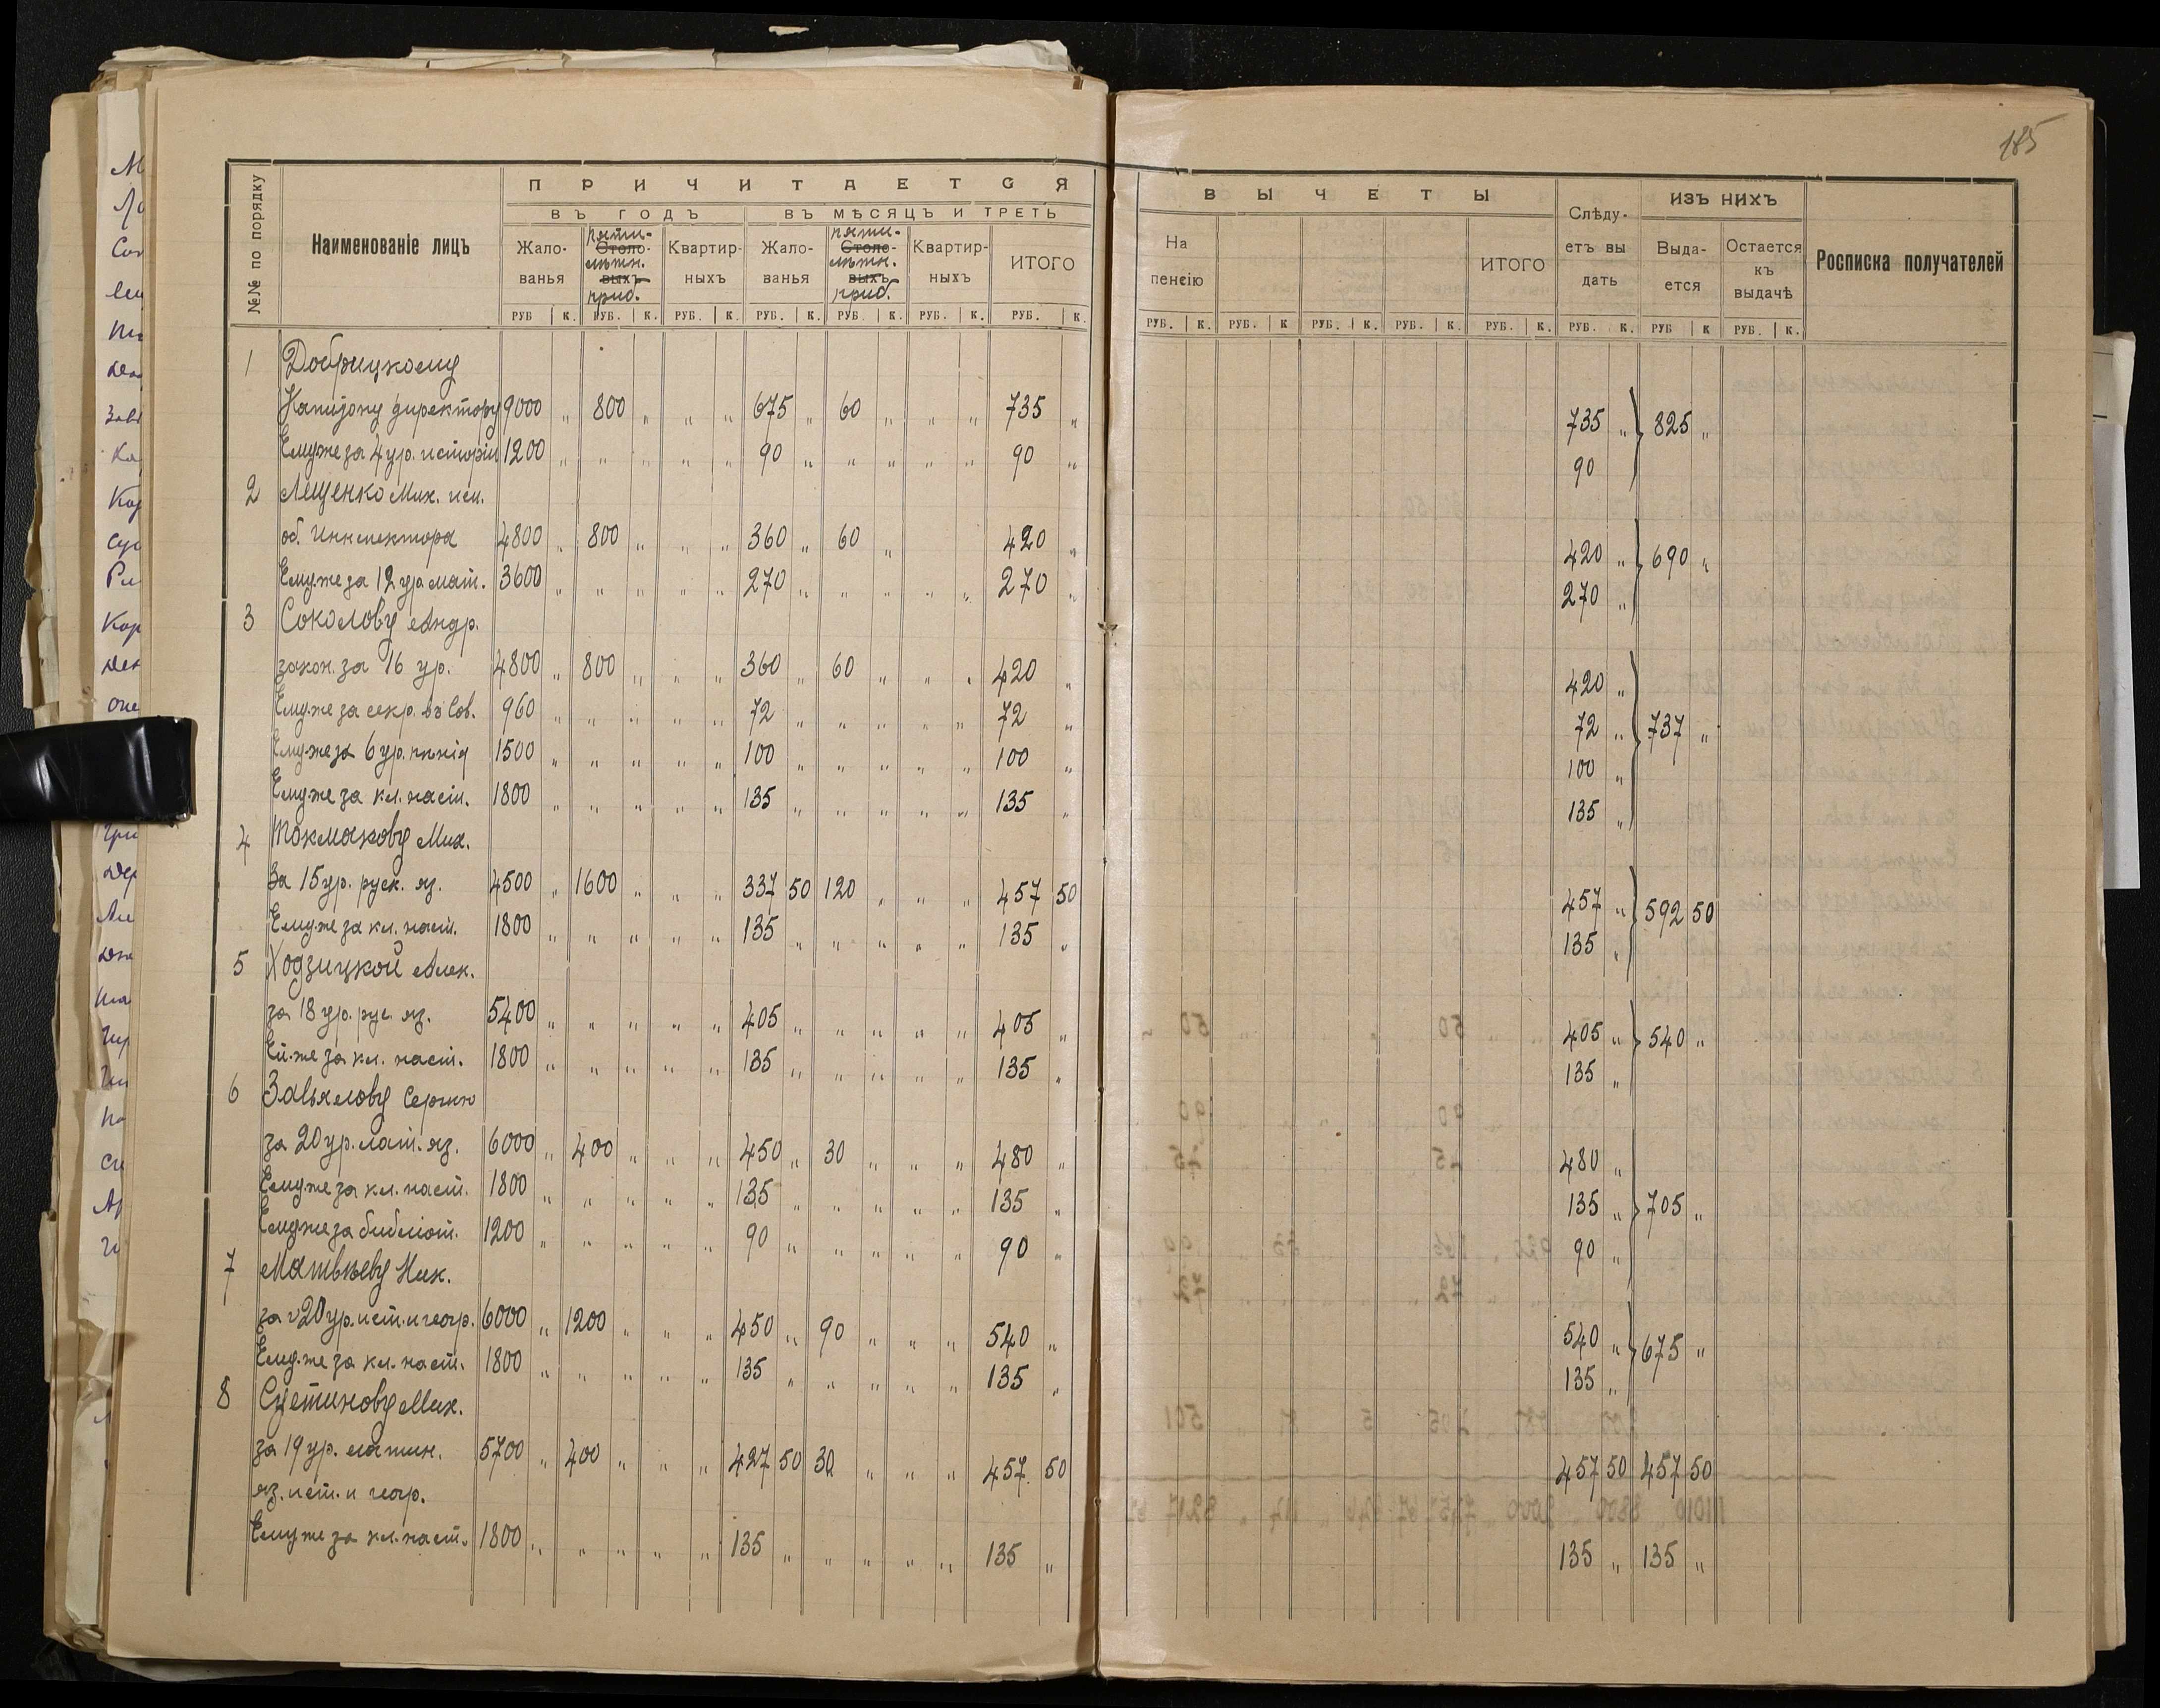 185
№№ по порядку
Наименованіе лицъ
ПРИЧИТАЕТСЯ
ВЪ ГОДЪ
ВЪ МѢСЯЦЪ И ТРЕТЬ
Жало-
ванья
пяти-
Столо-
лѣтн.
выхъ
приб.
Квартир-
ныхъ
Жало-
ванья
пяти-
Столо-
лѣтн.
выхъ
приб.
Квартир-
ныхъ
ИТОГО
ВЫЧЕТЫ
На
пенсію
ИТОГО
Слѣду-
етъ вы
дать
ИЗЪ НИХЪ
Выда-
ется
Остается
къ
выдачѣ
Росписка получателей
РУБ К. РУБ. К. РУБ. К. РУБ. К. РУБ. К. РУБ. К. РУБ. К.
РУБ. К. РУБ. К РУБ. К. РУБ. К. РУБ. К. РУБ. К. РУБ К РУБ. К.
1 Добрицкому
директору 9000 „ 800 „ „ „ 675 „ 60 „ „ „ 735 „ 735 „ 825 „
Ему же за 4 ур. исторіи 1200 „ „ „ „ „ 90 „ „ „ „ „ 90 „ 90
2 Лещенко Мих. исп.
об. Инспектора 4800 „ 800 „ „ „ 360 „ 60 „ 420 „ 420 „ 690 „
Ему же за 12 ур. мат. 3600 „ „ „ „ „ 270 „ „ „ „ „ 270 „ 270 „
3 Соколову Андр.
закон. за 16 ур. 4800 „ 800 „ „ „ 360 „ 60 „ „ „ 420 „ 420 „
Ему же за секр. въ Сов. 960 „ „ „ „ „ 72 „ „ „ „ „ 72 „ 72 „ 737 „
Ему же за 6 ур. 1500 „ „ „ „ „ 100 „ „ „ „ „ 100 „ 100 „
Ему же за кл. наст. 1800 „ „ „ „ „ 135 „ „ „ „ „ 135 „ 135 „
4 Токмакову Мих.
За 15 ур. руск. яз. 4500 „ 1600 „ „ „ 337 50 120 „ „ „ 457 50 457 „ 592 50
Ему же за кл. наст. 1800 „ „ „ „ „ 135 „ „ „ „ „ 135 „ 135 „
5 Ходзицкой Алек.
за 18 ур. рус. яз. 5400 „ „ „ „ „ 405 „ „ „ „ „ 405 „ 405 „ 540 „
Ей-же за кл. наст. 1800 „ „ „ „ „ 135 „ „ „ „ „ 135 „ 135 „
6 Завьялову Сергѣю
за 20 ур. лат. яз. 6000 „ 400 „ „ „ 450 „ 30 „ „ „ 480 „ 480 „
Ему же за кл. наст. 1800 „ „ „ „ „ 135 „ „ „ „ „ 135 „ 135 „ 705 „
Ему же за библіот. 1200 „ „ „ „ „ 90 „ „ „ „ „ 90 „ 90 „
7 Матвѣеву Ник.
за 20 ур. ист. и геогр. 6000 „ 1200 „ „ „ 450 „ 90 „ „ „ 540 „ 540 „ 675 „
Ему же за кл. наст. 1800 „ „ „ „ „ 135 „ „ „ „ „ 135 „ 135 „
8 Счетинову Мих.
за 19 ур. латин. 5700 „ 400 „ „ „ 427 50 30 „ „ „ 457 50 457 50 457 50
яз. ист. и геогр.
Ему же за кл. наст. 1800 „ „ „ „ „ 135 „ „ „ „ „ 135 „ 135 „ 135 „